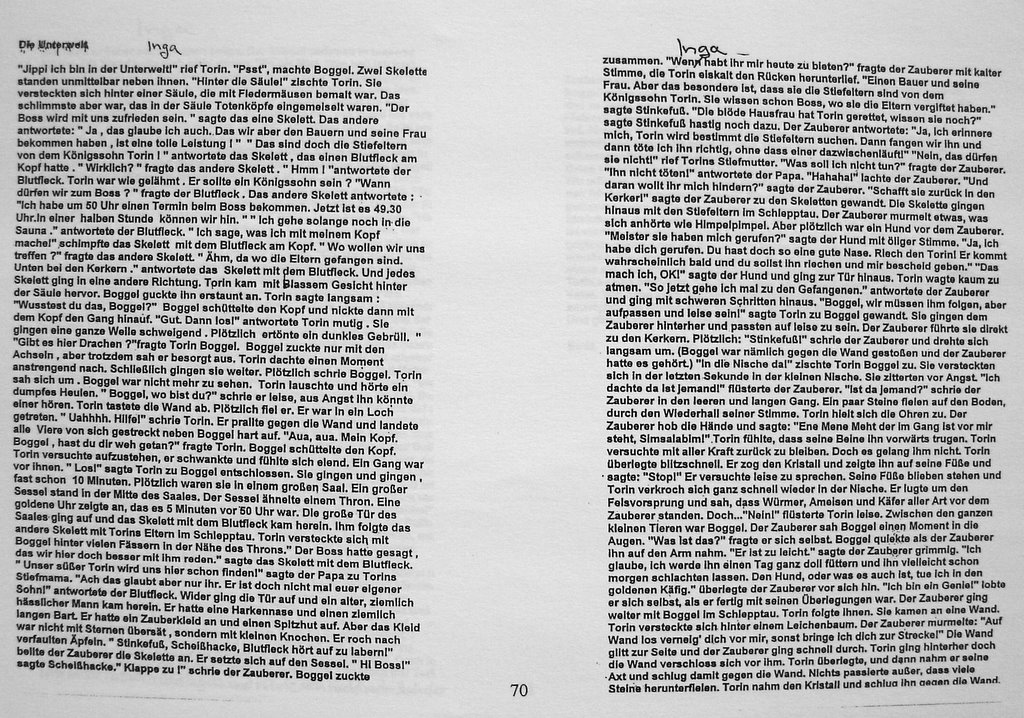 Die Unterwelt
Inga
"Jippi ich bin in der Unterwelt!" rief Torin. "Psst", machte Boggel. Zwei Skelette
standen unmittelbar neben ihnen. "Hinter die Säule!" zischte Torin. Sie
versteckten sich hinter einer Säule, die mit Fledermäusen bemalt war. Das
schlimmste aber war, das in der Säule Totenköpfe eingemeiselt waren. "Der
Boss wird mit uns zufrieden sein. " sagte das eine Skelett. Das andere
antwortete: " Ja , das glaube ich auch. Das wir aber den Bauern und seine Frau
bekommen haben , ist eine tolle Leistung ! "  " Das sind doch die Stiefeltern
von dem Königssohn Torin ! " antwortete das Skelett , das einen Blutfleck am
Kopf hatte . " Wirklich? " fragte das andere Skelett . " Hmm ! "antwortete der
Blutfleck. Torin war wie gelähmt . Er sollte ein Königssohn sein ? "Wann
dürfen wir zum Boss ? " fragte der Blutfleck . Das andere Skelett antwortete :
"Ich habe um 50 Uhr einen Termin beim Boss bekommen. Jetzt ist es 49.30
Uhr.In einer  halben Stunde  können wir hin. " " Ich gehe solange noch in die
Sauna ." antwortete der Blutfleck. " Ich sage, was ich mit meinem Kopf
mache!" schimpfte das Skelett  mit dem Blutfleck am Kopf. " Wo wollen wir uns
treffen ?" fragte das andere Skelett. " Ähm, da wo die Eltern gefangen sind.
Unten bei den Kerkern ." antwortete das  Skelett mit dem Blutfleck. Und jedes
Skelett ging in eine andere Richtung. Torin kam  mit blassem Gesicht hinter
der Säule hervor. Boggel guckte ihn erstaunt an. Torin sagte langsam :
"Wusstest du das, Boggel?"  Boggel schüttelte den Kopf und nickte dann mit
dem Kopf den Gang hinauf. "Gut. Dann los!" antwortete Torin mutig . Sie
gingen eine ganze Weile schweigend . Plötzlich  ertönte ein dunkles Gebrüll.  "
"Gibt es hier Drachen ?"fragte Torin Boggel.  Boggel zuckte nur mit den
Achseln , aber trotzdem sah er besorgt aus. Torin dachte einen Moment
anstrengend nach. Schließlich gingen sie weiter. Plötzlich schrie Boggel. Torin
sah sich um . Boggel war nicht mehr zu sehen.  Torin lauschte und hörte ein
dumpfes Heulen. " Boggel, wo bist du?" schrie er leise, aus Angst ihn könnte
einer hören. Torin tastete die Wand ab. Plötzlich fiel er. Er war in ein Loch
getreten. " Uahhhh. Hilfe!" schrie Torin. Er prallte gegen die Wand und landete
alle  Viere von sich gestreckt neben Boggel hart auf. "Aua, aua. Mein Kopf.
Boggel , hast du dir weh getan?" fragte Torin. Boggel schüttelte den Kopf.
Torin versuchte aufzustehen, er schwankte und fühlte sich elend. Ein Gang war
vor ihnen. " Los!" sagte Torin zu Boggel entschlossen. Sie gingen und gingen ,
fast schon  10 Minuten. Plötzlich waren sie in einem großen Saal. Ein großer
Sessel stand in der Mitte des Saales. Der Sessel ähnelte einem Thron. Eine
goldene Uhr zeigte an, das es 5 Minuten vor 50 Uhr war. Die große Tür des
Saales ging auf und das Skelett mit dem Blutfleck kam herein. Ihm folgte das
andere Skelett mit Torins Eltern im Schlepptau. Torin versteckte sich mit
Boggel hinter vielen Fässern in der Nähe des Throns." Der Boss hatte gesagt ,
das wir hier doch besser mit ihm reden." sagte das Skelett mit dem Blutfleck.
" Unser süßer Torin wird uns hier schon finden!" sagte der Papa zu Torins
Stiefmama. "Ach das glaubt aber nur ihr. Er ist doch nicht mal euer eigener
Sohn!" antwortete der Blutfleck. Wider ging die Tür auf und ein alter, ziemlich
hässlicher Mann kam herein. Er hatte eine Harkennase und einen ziemlich
langen Bart. Er hatte ein Zauberkleid an und einen Spitzhut auf. Aber das Kleid
war nicht mit Sternen übersät , sondern mit kleinen Knochen. Er roch nach
verfaulten Äpfeln. " Stinkefuß, Scheißhacke, Blutfleck hört auf zu labern!"
bellte der Zauberer die Skelette an. Er setzte sich auf den Sessel. " Hi Boss!"
sagte Scheißhacke." Klappe zu !" schrie der Zauberer. Boggel zuckte
Inga –
zusammen. "Wenn habt ihr mir heute zu bieten?" fragte der Zauberer mit kalter
Stimme, die Torin eiskalt den Rücken herunterlief. "Einen Bauer und seine
Frau. Aber das besondere ist, dass sie die Stiefeltern sind von dem
Königssohn Torin. Sie wissen schon Boss, wo sie die Eltern vergiftet haben."
sagte Stinkefuß. "Die blöde Hausfrau hat Torin gerettet, wissen sie noch?"
sagte Stinkefuß hastig noch dazu. Der Zauberer antwortete: "Ja, ich erinnere
mich, Torin wird bestimmt die Stiefeltern suchen. Dann fangen wir ihn und
dann töte ich ihn richtig, ohne dass einer dazwischenläuft!" "Nein, das dürfen
sie nicht!" rief Torins Stiefmutter. "Was soll ich nicht tun?" fragte der Zauberer.
"Ihn nicht töten!" antwortete der Papa. "Hahaha!" lachte der Zauberer. "Und
daran wollt ihr mich hindern?" sagte der Zauberer. "Schafft sie zurück in den
Kerker!" sagte der Zauberer zu den Skeletten gewandt. Die Skelette gingen
hinaus mit den Stiefeltern im Schlepptau. Der Zauberer murmelt etwas, was
sich anhörte wie Himpelpimpel. Aber plötzlich war ein Hund vor dem Zauberer.
"Meister sie haben mich gerufen?" sagte der Hund mit öliger Stimme. "Ja, ich
habe dich gerufen. Du hast doch so eine gute Nase. Riech den Torin! Er kommt
wahrscheinlich bald und du sollst ihn riechen und mir bescheid geben." "Das
mach ich, OK!" sagte der Hund und ging zur Tür hinaus. Torin wagte kaum zu
atmen. "So jetzt gehe ich mal zu den Gefangenen." antwortete der Zauberer
und ging mit schweren Schritten hinaus. "Boggel, wir müssen ihm folgen, aber
aufpassen und leise sein!" sagte Torin zu Boggel gewandt. Sie gingen dem
Zauberer hinterher und passten auf leise zu sein. Der Zauberer führte sie direkt
zu den Kerkern. Plötzlich: "Stinkefuß!" schrie der Zauberer und drehte sich
langsam um. (Boggel war nämlich gegen die Wand gestoßen und der Zauberer
hatte es gehört.) "In die Nische da!" zischte Torin Boggel zu. Sie versteckten
sich in der letzten Sekunde in der kleinen Nische. Sie zitterten vor Angst. "Ich
dachte da ist jemand!" flüsterte der Zauberer. "Ist da jemand?" schrie der
Zauberer in den leeren und langen Gang. Ein paar Steine fielen auf den Boden,
durch den Wiederhall seiner Stimme. Torin hielt sich die Ohren zu. Der
Zauberer hob die Hände und sagte: "Ene Mene Meht der im Gang ist vor mir
steht, Simsalabim!".Torin fühlte, dass seine Beine ihn vorwärts trugen. Torin
versuchte mit aller Kraft zurück zu bleiben. Doch es gelang ihm nicht. Torin
überlegte blitzschnell. Er zog den Kristall und zeigte ihn auf seine Füße und
sagte: "Stop!" Er versuchte leise zu sprechen. Seine Füße blieben stehen und
Torin verkroch sich ganz schnell wieder in der Nische. Er lugte um den
Felsvorsprung und sah, dass Würmer, Ameisen und Käfer aller Art vor dem
Zauberer standen. Doch..."Nein!" flüsterte Torin leise. Zwischen den ganzen
kleinen Tieren war Boggel. Der Zauberer sah Boggel einen Moment in die
Augen. "Was ist das?" fragte er sich selbst. Boggel quiekte als der Zauberer
ihn auf den Arm nahm. "Er ist zu leicht." sagte der Zauberer grimmig. "Ich
glaube, ich werde ihn einen Tag ganz doll füttern und ihn vielleicht schon
morgen schlachten lassen. Den Hund, oder was es auch ist, tue ich in den
goldenen Käfig." überlegte der Zauberer vor sich hin. "Ich bin ein Genie!" lobte
er sich selbst, als er fertig mit seinen Überlegungen war. Der Zauberer ging
weiter mit Boggel im Schlepptau. Torin folgte ihnen. Sie kamen an eine Wand.
Torin versteckte sich hinter einem Leichenbaum. Der Zauberer murmelte: "Auf
Wand los verneig' dich vor mir, sonst bringe ich dich zur Strecke!" Die Wand
glitt zur Seite und der Zauberer ging schnell durch. Torin ging hinterher doch
die Wand verschloss sich vor ihm. Torin überlegte, und dann nahm er seine
Axt und schlug damit gegen die Wand. Nichts passierte außer, dass viele
Steine herunterfielen. Torin nahm den Kristall und schlug ihn gegen die Wand.
70